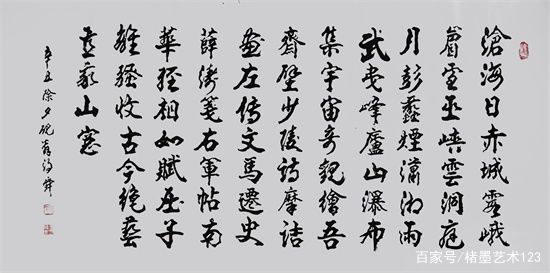 滄海日赤城霞峨
眉雪巫峽雲洞庭
月彭蠡煙瀟湘雨
武夷峰廬山瀑布
集宇宙奇觀繪吾
齋壁少陵詩摩詰
畫左傳文馬遷史
薛濤箋右軍帖南
華經相如賦屈子
離騷收古今絕藝
置我山窗
辛丑除夕
百家号/楮墨艺术123